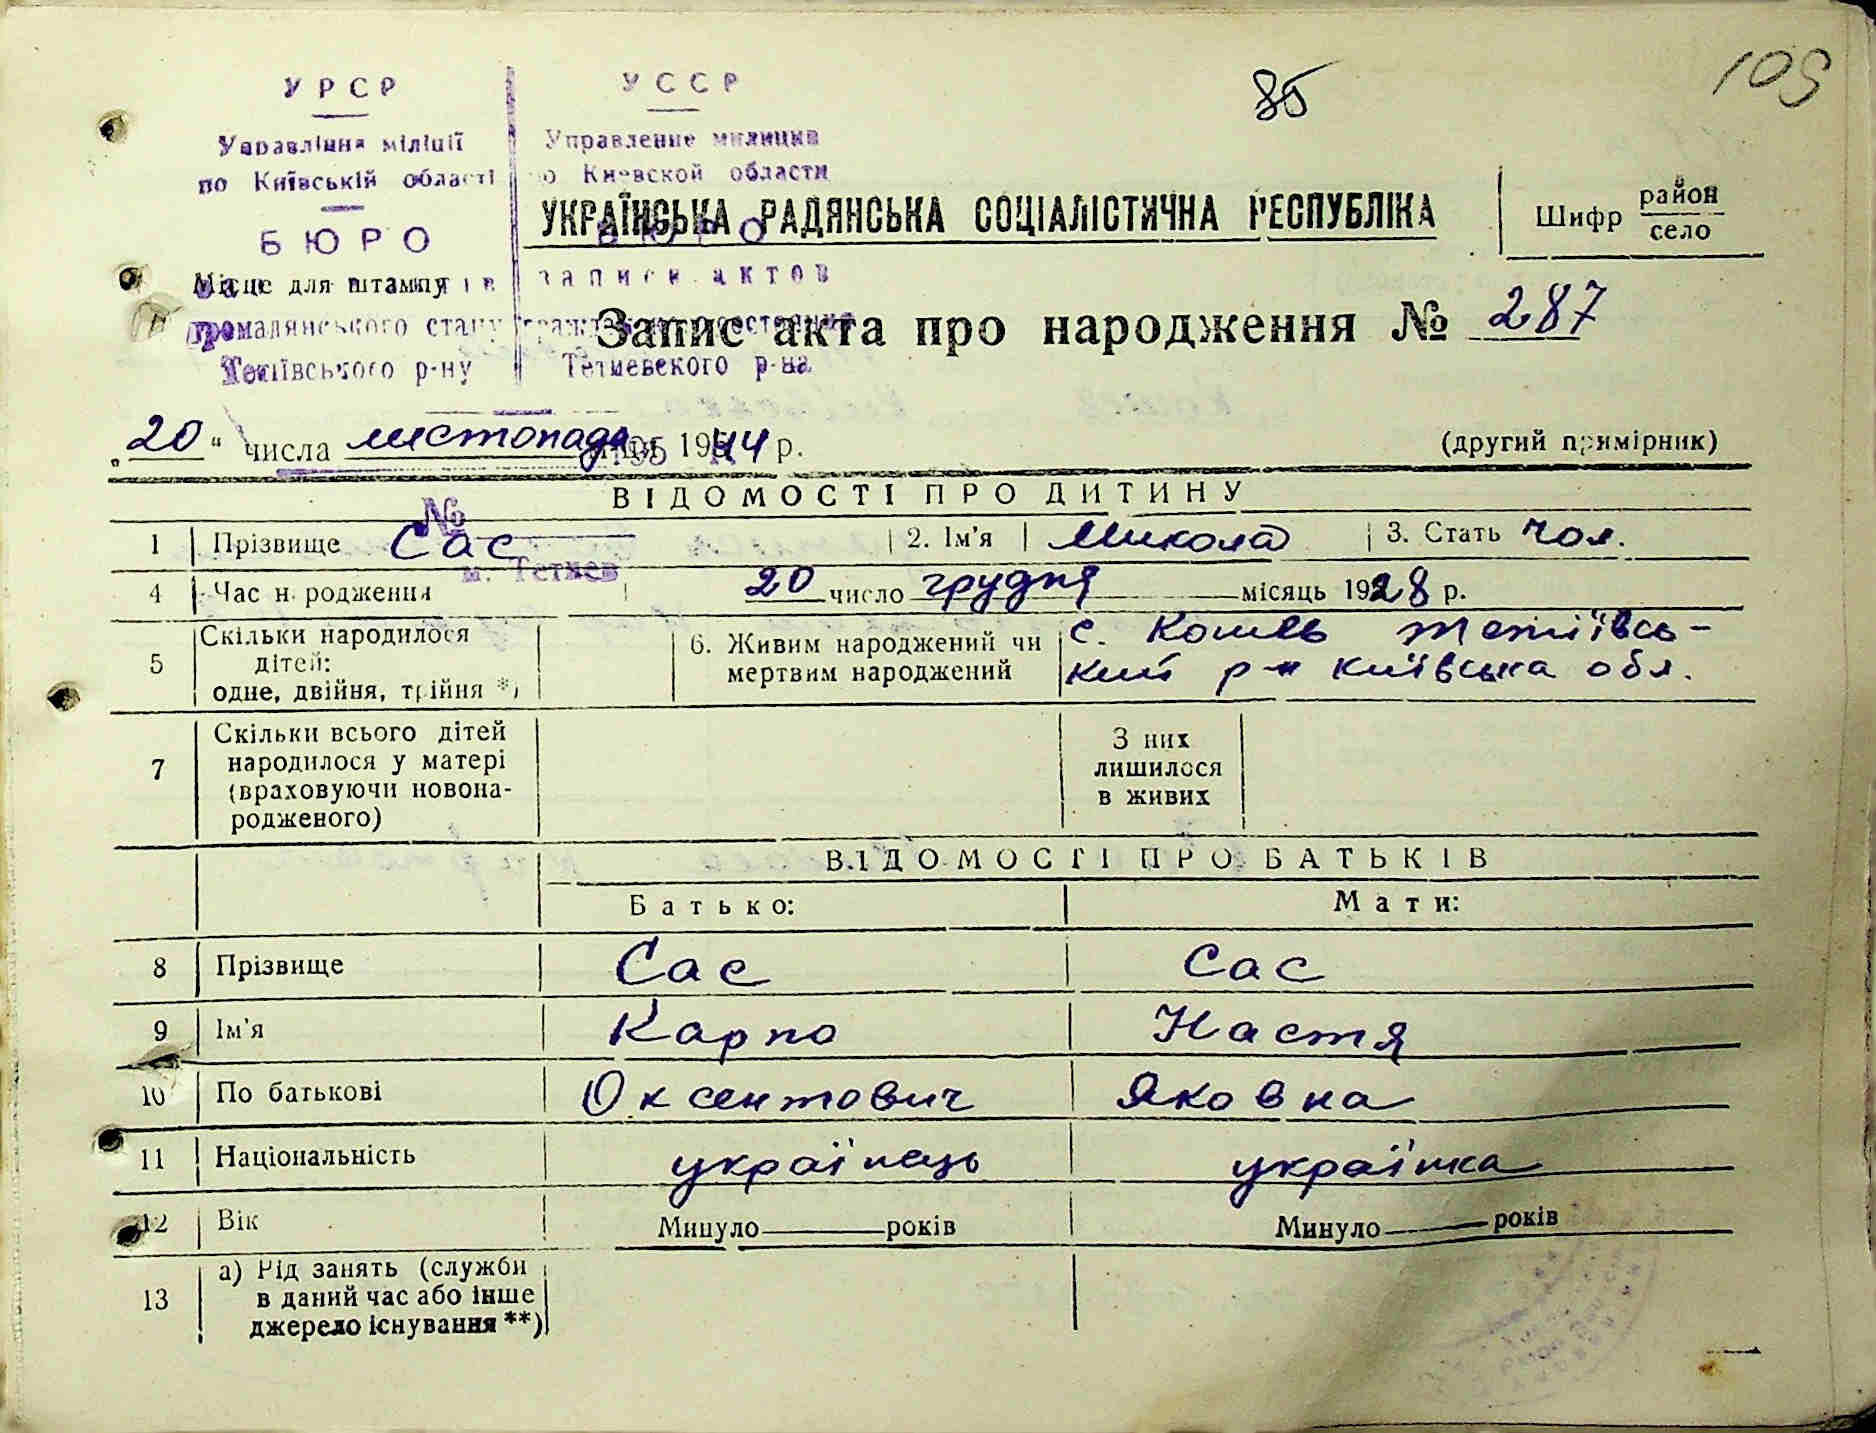 85
109
УРСР
УССР
Управління міліції
Управление милиции
по Київській області
по Киевской области
БЮРО
УКРАЇНСЬКА РАДЯНСЬКА СОЦІАЛІСТИЧНА РЕСПУБЛІКА
Шифр район
село
Місце для штампу
записи актов
громадянського стану
Запис акта про народження № 287
Тетіївського р-ну
Тетиевского р-на
„20“ числа листопада 1944 р.
(другий примірник)
ВІДОМОСТІ ПРО ДИТИНУ
№
1 Прізвище Сас 2. Ім'я Микола 3. Стать чол.
м. Тетиев
4 Час народження 20 число грудня місяць 1928 р.
5 Скільки народилося
дітей:
одне, двійня, трійня *)
6. Живим народжений чи
мертвим народжений
с. Кошів Тетіївсь-
кий р-н Київська обл.
7 Скільки всього дітей
народилося у матері
(враховуючи новона-
родженого)
З них
лишилося
в живих
ВІДОМОСТІ ПРО БАТЬКІВ
Батько: Мати:
8 Прізвище Сас Сас
9 Ім'я Карпо Настя
10 По батькові Оксентович Яковна
11 Національність українець українка
12 Вік Минуло років Минуло років
13 а) Рід занять (служби
в даний час або інше
джерело існування **)